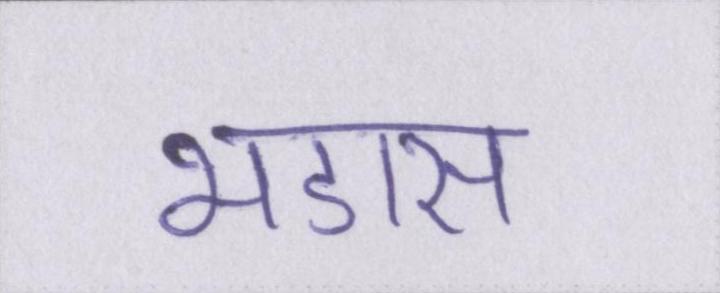 भडास